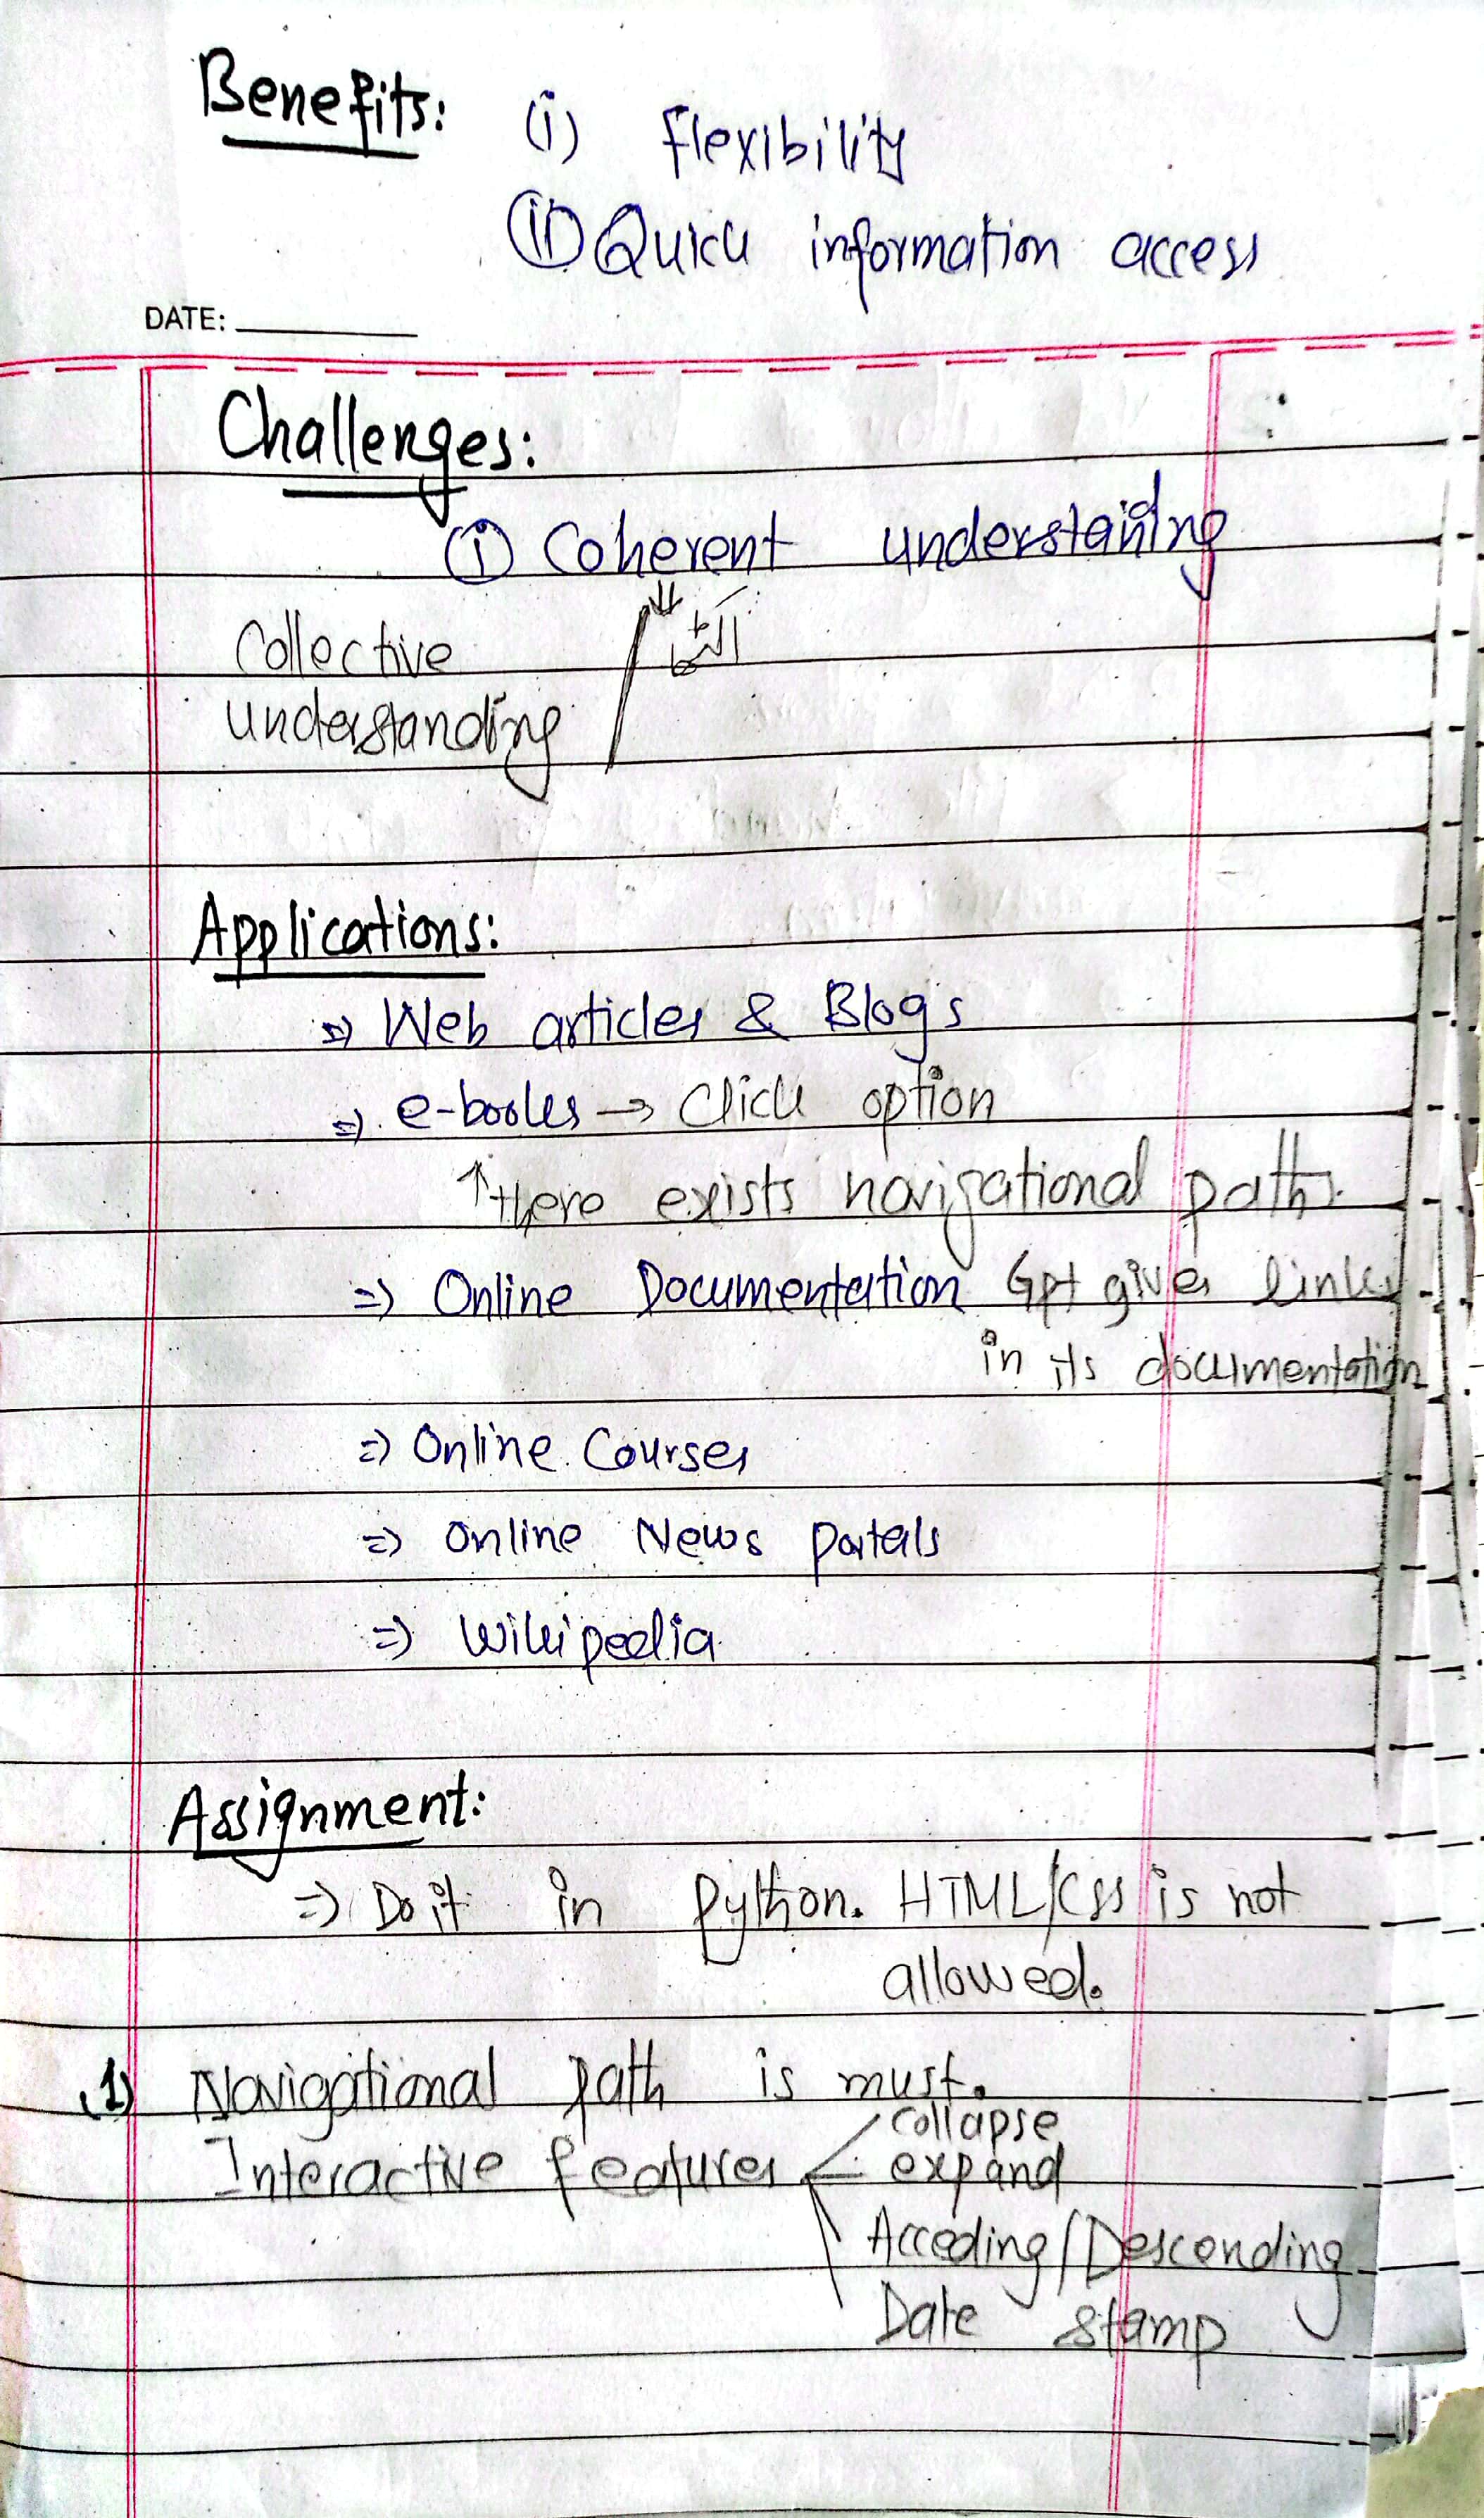 Benefits: (i) flexibility
(ii) Quick information access
DATE:
Challenges:
(i) Coherent understanding
Collective
اکٹھا
understanding
Applications:
⇒ Web articles & Blogs
⇒ e-books → Click option
↑ there exists navigational path.
⇒ Online Documentation Gpt gives links
in its documentation
⇒ Online Courses
⇒ Online News Portals
⇒ Wikipedia
Assignment:
⇒ Do it in Python. HTML/CSS is not
allowed.
(1) Navigational path is must.
collapse
Interactive features expand
Acceding/Descending
Date stamp